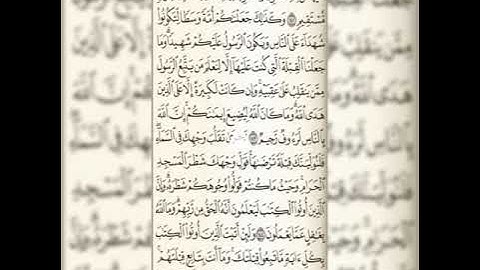 مُّسْتَقِيمٍ ۝ وَكَذَٰلِكَ جَعَلْنَاكُمْ أُمَّةً وَسَطًا لِّتَكُونُوا
شُهَدَاءَ عَلَى النَّاسِ وَيَكُونَ الرَّسُولُ عَلَيْكُمْ شَهِيدًا وَمَا
جَعَلْنَا الْقِبْلَةَ الَّتِي كُنتَ عَلَيْهَا إِلَّا لِنَعْلَمَ مَن يَتَّبِعُ الرَّسُولَ
مِمَّن يَنقَلِبُ عَلَىٰ عَقِبَيْهِ وَإِن كَانَتْ لَكَبِيرَةً إِلَّا عَلَى الَّذِينَ
هَدَى اللَّهُ وَمَا كَانَ اللَّهُ لِيُضِيعَ إِيمَانَكُمْ إِنَّ اللَّهَ
بِالنَّاسِ لَرَءُوفٌ رَّحِيمٌ ۝ تَقَلُّبَ وَجْهِكَ فِي السَّمَاءِ
فَلَنُوَلِّيَنَّكَ قِبْلَةً تَرْضَاهَا فَوَلِّ وَجْهَكَ شَطْرَ الْمَسْجِدِ
الْحَرَامِ وَحَيْثُ مَا كُنتُمْ فَوَلُّوا وُجُوهَكُمْ شَطْرَهُ وَإِنَّ
الَّذِينَ أُوتُوا الْكِتَابَ لَيَعْلَمُونَ أَنَّهُ الْحَقُّ مِن رَّبِّهِمْ وَمَا اللَّهُ
بِغَافِلٍ عَمَّا يَعْمَلُونَ ۝ وَلَئِنْ أَتَيْتَ الَّذِينَ أُوتُوا الْكِتَابَ
بِكُلِّ آيَةٍ مَّا تَبِعُوا قِبْلَتَكَ وَمَا أَنتَ بِتَابِعٍ قِبْلَتَهُمْ